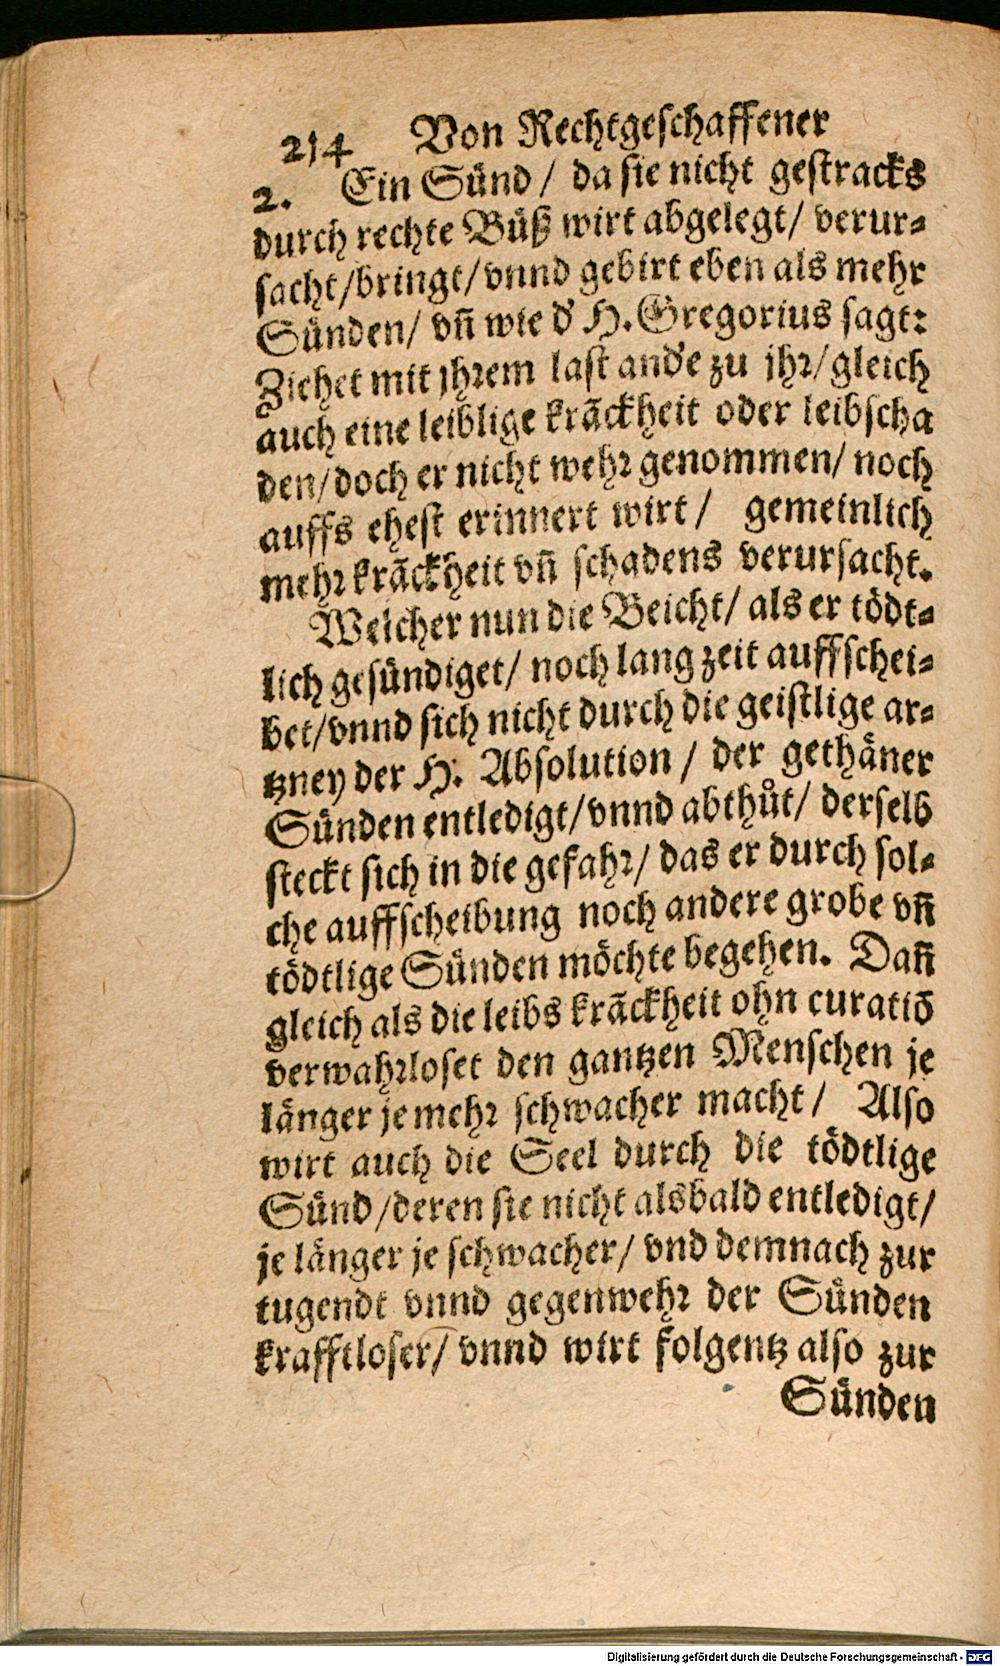 214 Von Rechtgeschaffener
2. Ein Sünd / da sie nicht gestracks
durch rechte Büß wirt abgelegt / verur⸗
sacht / bringt / vnnd gebirt eben als mehr
Sünden / vñ wie d' H. Gregorius sagt:
Ziehet mit jhrem last and'e zu jhr / gleich
auch eine leiblige krãckheit oder leibscha
den / doch er nicht wehr genommen / noch
auffs ehest erinnert wirt / gemeinlich
mehr krãckheit vñ schadens verursacht.
Welcher nun die Beicht / als er tödt⸗
lich gesündiget / noch lang zeit auffschei⸗
bet / vnnd sich nicht durch die geistlige ar⸗
tzney der H. Absolution / der gethäner
Sünden entledigt / vnnd abthůt / derselb
steckt sich in die gefahr / das er durch sol⸗
che auffscheibung noch andere grobe vñ
tödtlige Sünden möchte begehen. Dañ
gleich als die leibs krãckheit ohn curatiõ
verwahrloset den gantzen Menschen je
länger je mehr schwacher macht / Also
wirt auch die Seel durch die tödtlige
Sünd / deren sie nicht alsbald entledigt /
je länger je schwacher / vnd demnach zur
tugendt vnnd gegenwehr der Sünden
krafftloser / vnnd wirt folgentz also zur
Sünden
Digitalisierung gefördert durch die Deutsche Forschungsgemeinschaft - DFG